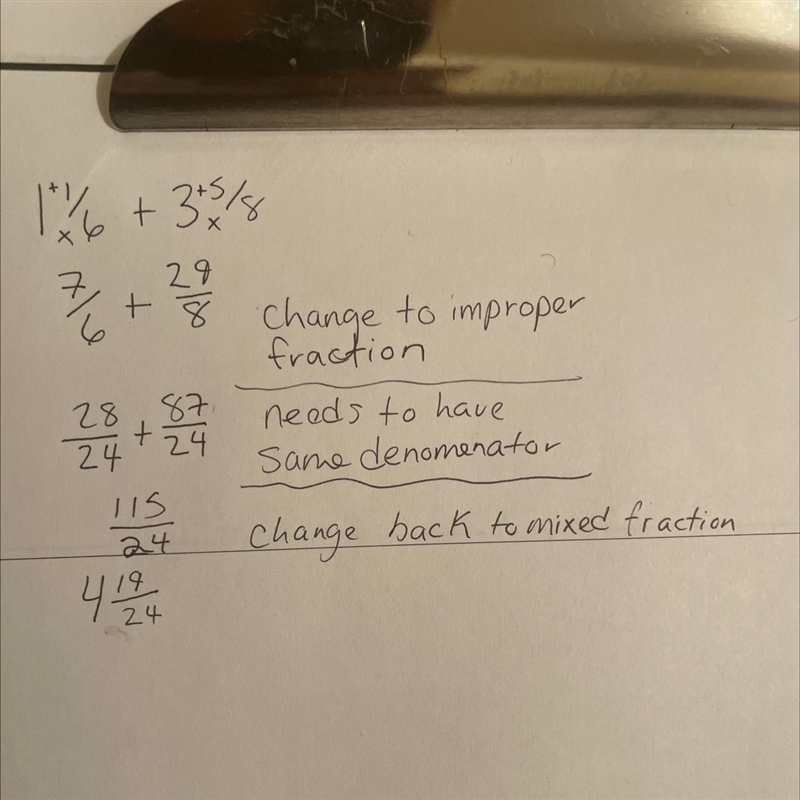 1 +1/x6 + 3 +5/x8
7/6 + 29/8 change to improper
fraction
28/24 + 87/24 needs to have
same denomenator
115/24 change back to mixed fraction
4 19/24